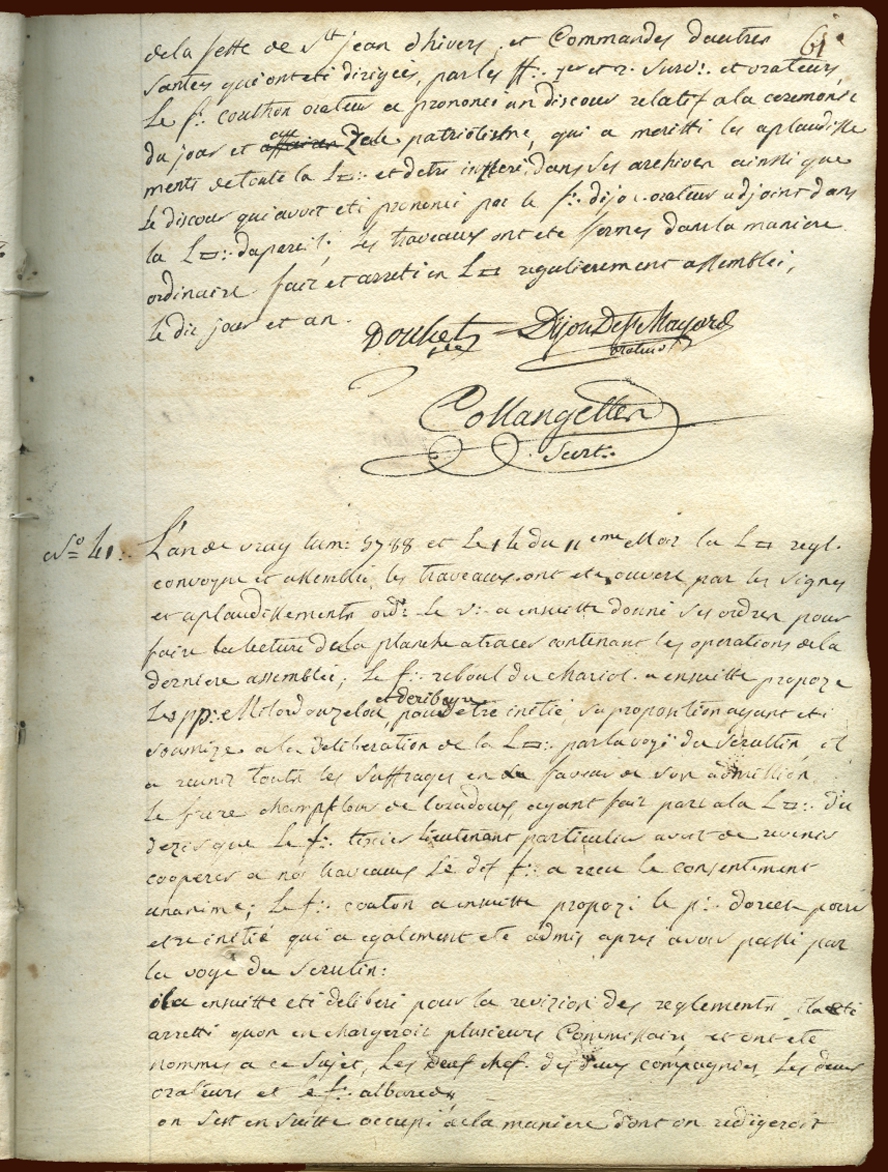 61
de la fette de St jean dhivers, et Commandes dautres
santes qui ont eti dirigées, par les ff∴ 1er et 2. surv∴ et orateurs,
Le f∴ couthon orateur a prononcé un discour relatif ala ceremonie
du jour et au Zele patriotisme, qui a meritti les aplaudisse
ments de toute la L▭∴ et detre inseré, dans ses archives ainsi que
le discour qui avoit eti prononcé par le f∴ dijon orateur adjoint dans
la L▭∴ les travaux ont ete fermes dans la maniere
ordinaire fait et arreti en L▭ regulierement assemblée,
le dit jour et an.
Douhet Dijon De St Mayard
orateur
Collangettes
Secrt∴
No 41∴ L'an de vray lum∴ 5788 et le 14 du 11eme Mois la L▭ regl.
convoque et assemblée, les travaux ont ete ouvert par les signes
et aplaudissements ord∴ le v∴ a ensuitte donné ses ordres pour
faire la lecture de la planche a tracer contenant les operations de la
derniere assemblée, Le f∴ reboul du chariol a ensuitte propoze
Les pp∴ et deribeyre pour etre initié, sa proposition ayant eti
soumize a la deliberation de la L▭∴ par la voye du Scruttin, et
a reunir touts les suffrages en faveur de son admission
Le frere champflour de loradoux, ayant fait part a la L▭∴ du
dezir que le f∴ tixier lieutenant particulier avoit de revenir
cooperer a nos travaux le dit f∴ a recu le consentement
unanime; Le f∴ couton a ensuitte propozé le p∴ dorcet pour
etre initié qui a egalement ete admis apres avoir passé par
la voye du Scrutin:
il a ensuitte eti deliberé pour la revizion des reglements, il a eté
arretti quon en chargeroit plusieurs Commissaire, et ont ete
nommes a ce sujet, Les deux chef. des deux compagnies, Les deux
orateurs et le f∴
on sest en suitte occupé de la maniere dont on redigeroit